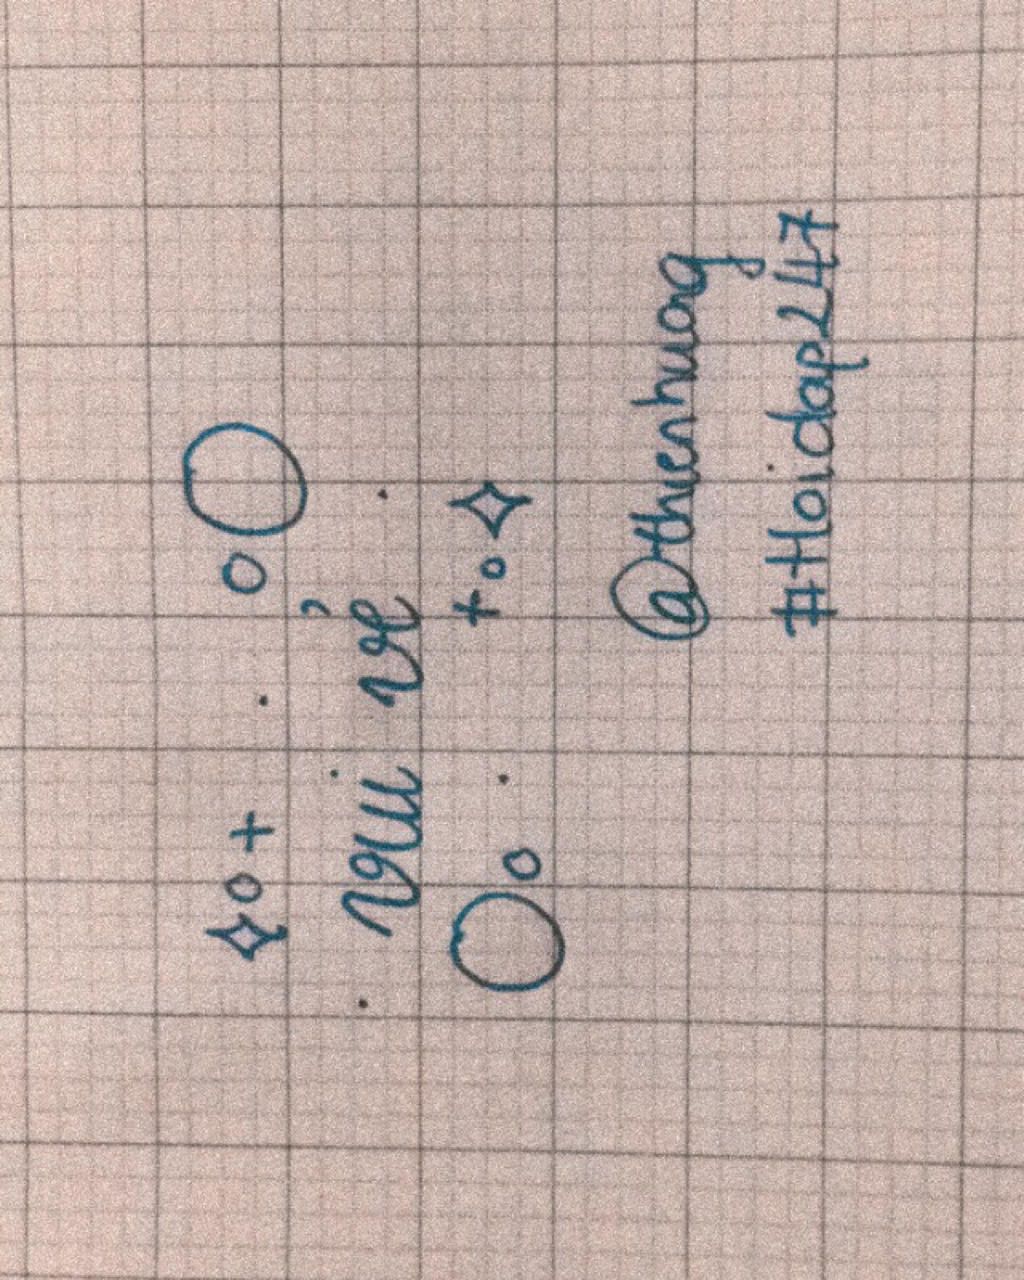 vui vẻ
@thienhuong
#Hoidap247